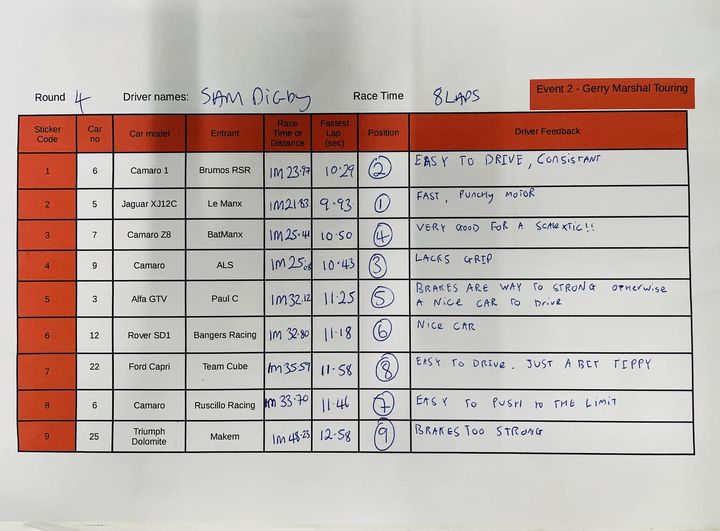 Event 2 - Gerry Marshal Touring
Round 4 Driver names: SAM DiGby Race Time 8 LAPS
Sticker Code Car no Car model Entrant Race Time or Distance Fastest Lap (sec) Position Driver Feedback
1 6 Camaro 1 Brumos RSR 1M 23.97 10.29 2 EASY TO DRIVE, CONSISTANT
2 5 Jaguar XJ12C Le Manx 1M21.83 9.93 1 FAST, PUNCHY MOTOR
3 7 Camaro Z8 BatManx 1M25.41 10.50 4 VERY GOOD FOR A SCALEXTIC!!
4 9 Camaro ALS 1M 25.08 10.43 3 LACKS GRIP
5 3 Alfa GTV Paul C 1M32.12 11.25 5 BRAKES ARE WAY TO STRONG OTHERWISE
A NICE CAR TO DRIVE
6 12 Rover SD1 Bangers Racing 1M 32.80 11.18 6 NICE CAR
7 22 Ford Capri Team Cube 1M35.59 11.58 8 EASY TO DRIVE. JUST A BIT TIPPY
8 6 Camaro Ruscillo Racing 1M 33.70 11.46 7 EASY TO PUSH TO THE LIMIT
9 25 Triumph Dolomite Makem 1M 48.23 12.58 9 BRAKES TOO STRONG